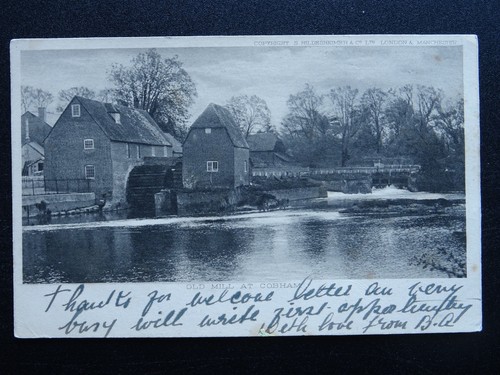 COPYRIGHT S HILDESHEIMER & CO LTD. LONDON & MANCHESTER
OLD MILL AT COBHAM
Thanks for welcome letter am very
busy will write first opportunity
With love from B.A